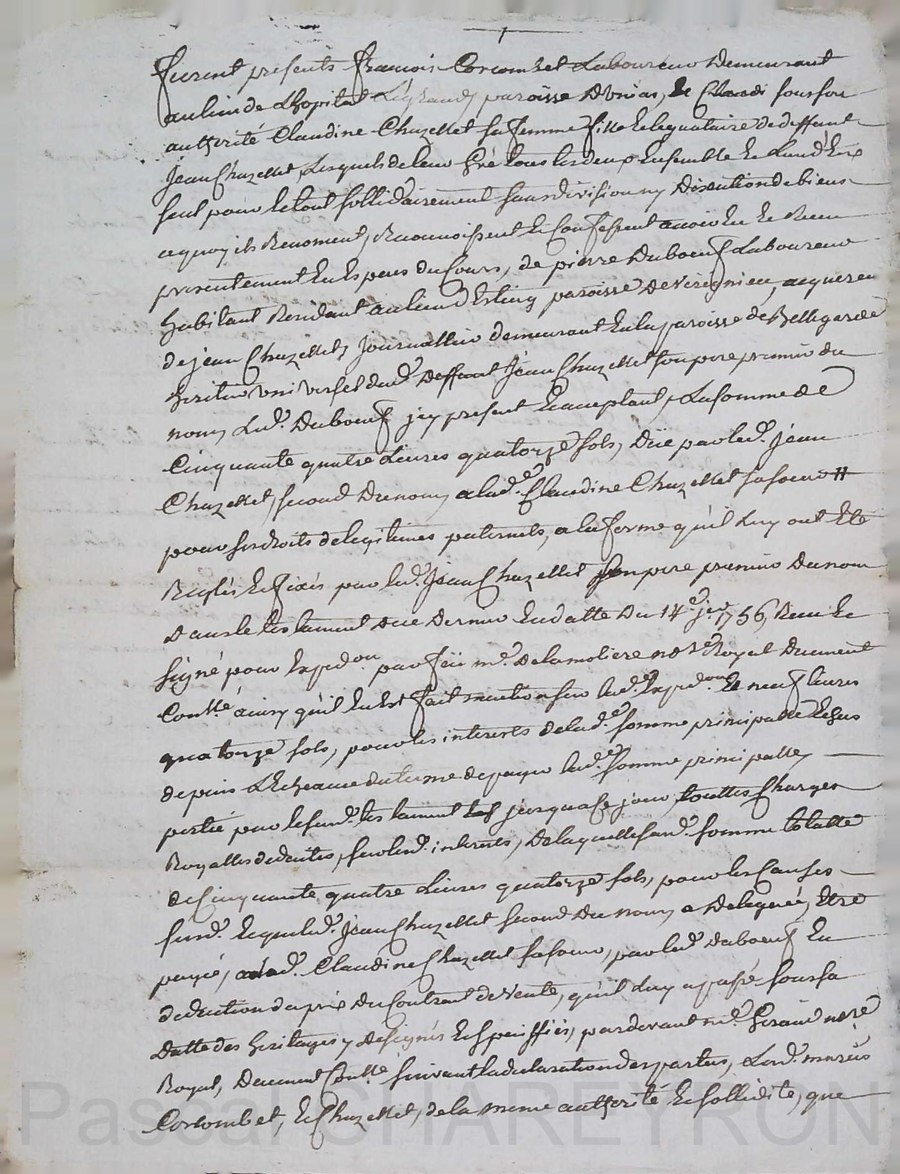 furent presents francois Corcombet Laboureur Demeurant
au lieu de Lhopital Legrand, paroisse D'uriar, de sous son
authorité Claudine Chazellet sa femme fille et legataire de deffunt
Jean Chazellet, Lesquels de leur gré tous les deux Ensemble Et L'un d'Eux
seul pour le tout sollidairement sans division ny Discution de biens
a quoy ils Renoncent, Reconnoissent Et Confessent avoir Eu Et Receu
presentement En Especes du Cours, de pierre Duboeuf Laboureur
habitant Residant au lieu paroisse de verignieu, acquereur
de jean Chazellet, Journallier demeurant En la paroisse de Bellegarde
heritier universel dud. Deffunt Jean Chazellet son pere premier du
nom, Led. Duboeuf jcy present Et acceptant, La somme de
Cinquante quatre Livres quatorze sols, Düe par led. Jean
Chazellet, second Du nom, a lad.e Claudine Chazellet sa soeur
pour ses droits de legitimes paternels, a la forme qu'il Luy ont Eté
Reglés Et fixés par led. Jean Chazellet son pere premier Du nom
Dans le testament De ce Dernier En datte Du 14.e jer 1756, Receu Et
signé pour Expedon par feü me. Delamoliere nore Royal Duement
Contlé ainsy qu'il En Est fait mention sur led. Expedon. Et neuf livres
quatorze sols, pour les interests de lad.e somme principalle Echus
depuis L'Echeance du terme de payer lad.e somme principalle,
portée par le sud. testament jusqu'a ce jour, touttes Charges
Royalles deduites, sur lesd. interests, De laquelle sud. somme totalle
de Cinquante quatre Livres quatorze sols, pour les Causes
susd. Et que led. Jean Chazellet second Du nom, a Deleguée, Etre
payée, a lad. Claudine Chazellet sa soeur, par led. Duboeuf En
deduction du prix Du Contrant de Vente, qu'il Luy a passé sous sa
Datte des heritages y Designés Et Speciffiés, pardevant me. Giraud nore
Royal, Deuement Contlé suivant la declaration des parties, Lesd. mariés
Corcombet, Et Chazellet, de la meme authorité Et sollidité, que
Pascal CHAREYRON